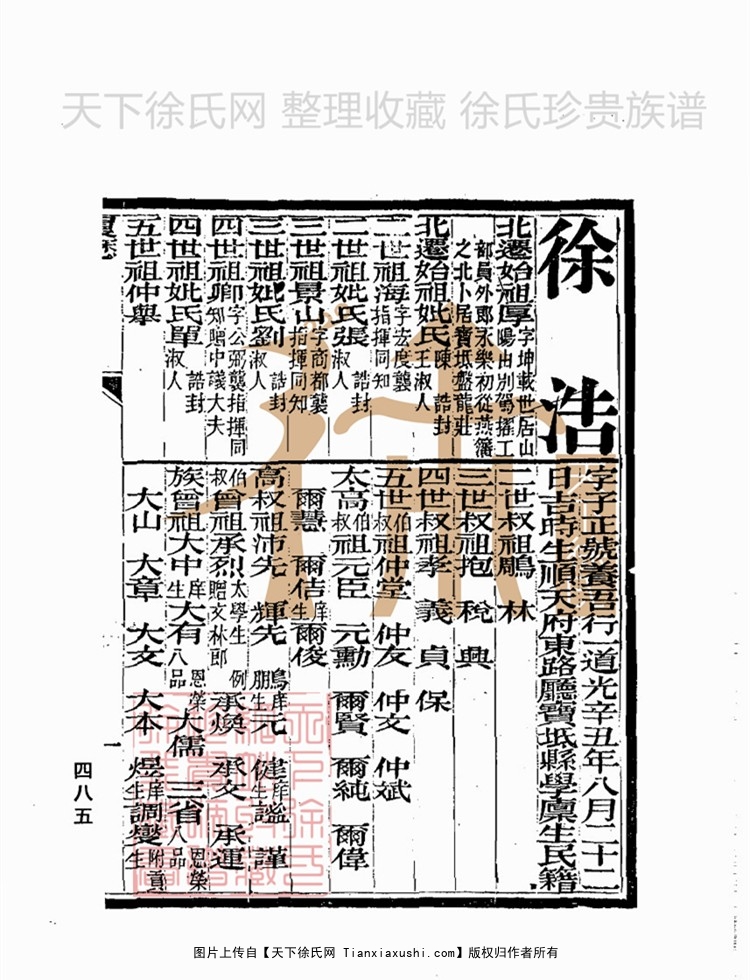 天下徐氏网 整理收藏 徐氏珍贵族谱
徐浩
字子正號養吾行一道光辛丑年八月二十二
日吉時生順天府東路廳寶坻縣學廩生民籍
北遷始祖厚字坤載世居山陽由別駕擢工部員外郎永樂初從燕藩之北小居寶坻盤龍莊
北遷始祖妣氏陳 誥封王淑人
二世祖海字宏度襲指揮同知
二世祖妣氏張 誥封淑人
三世祖景山字商都襲指揮同知
三世祖妣氏劉 誥封淑人
四世祖卿字公弼襲指揮同知贈中議大夫
四世祖妣氏單 誥封淑人
五世祖仲舉
履歷
二世叔祖鵬 林
三世叔祖抱 稅 興
四世叔祖孝 義 貞 保
五世伯叔祖仲堂 仲友 仲文 仲斌
太高伯叔祖元臣 元勳 爾賢 爾純 爾偉
爾慧 爾佶庠生 爾俊
高叔祖沛先 輝先 朋庠生 元 健庠生 謐 謹
伯叔曾祖承烈太學生 例贈文林郎 承煥 承文 承運
族曾祖大中庠生 大有恩榮八品 大儒 三省恩榮八品
大山 大章 大文 大本 煜庠生 調燮附貢生
一
四八五
天下徐氏网
图片上传自【天下徐氏网 Tianxiaxushi.com】版权归作者所有